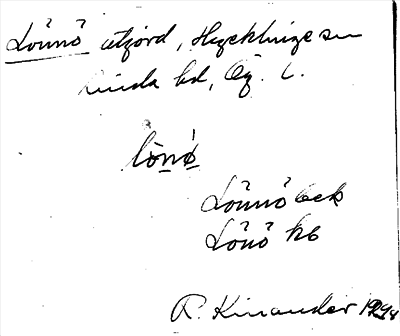 Lönnö utjord, Häckhinge sn
Kinda hd, Ög. l.
lönö
Lönnö bek
Lönö kb
R. Kinander 1924